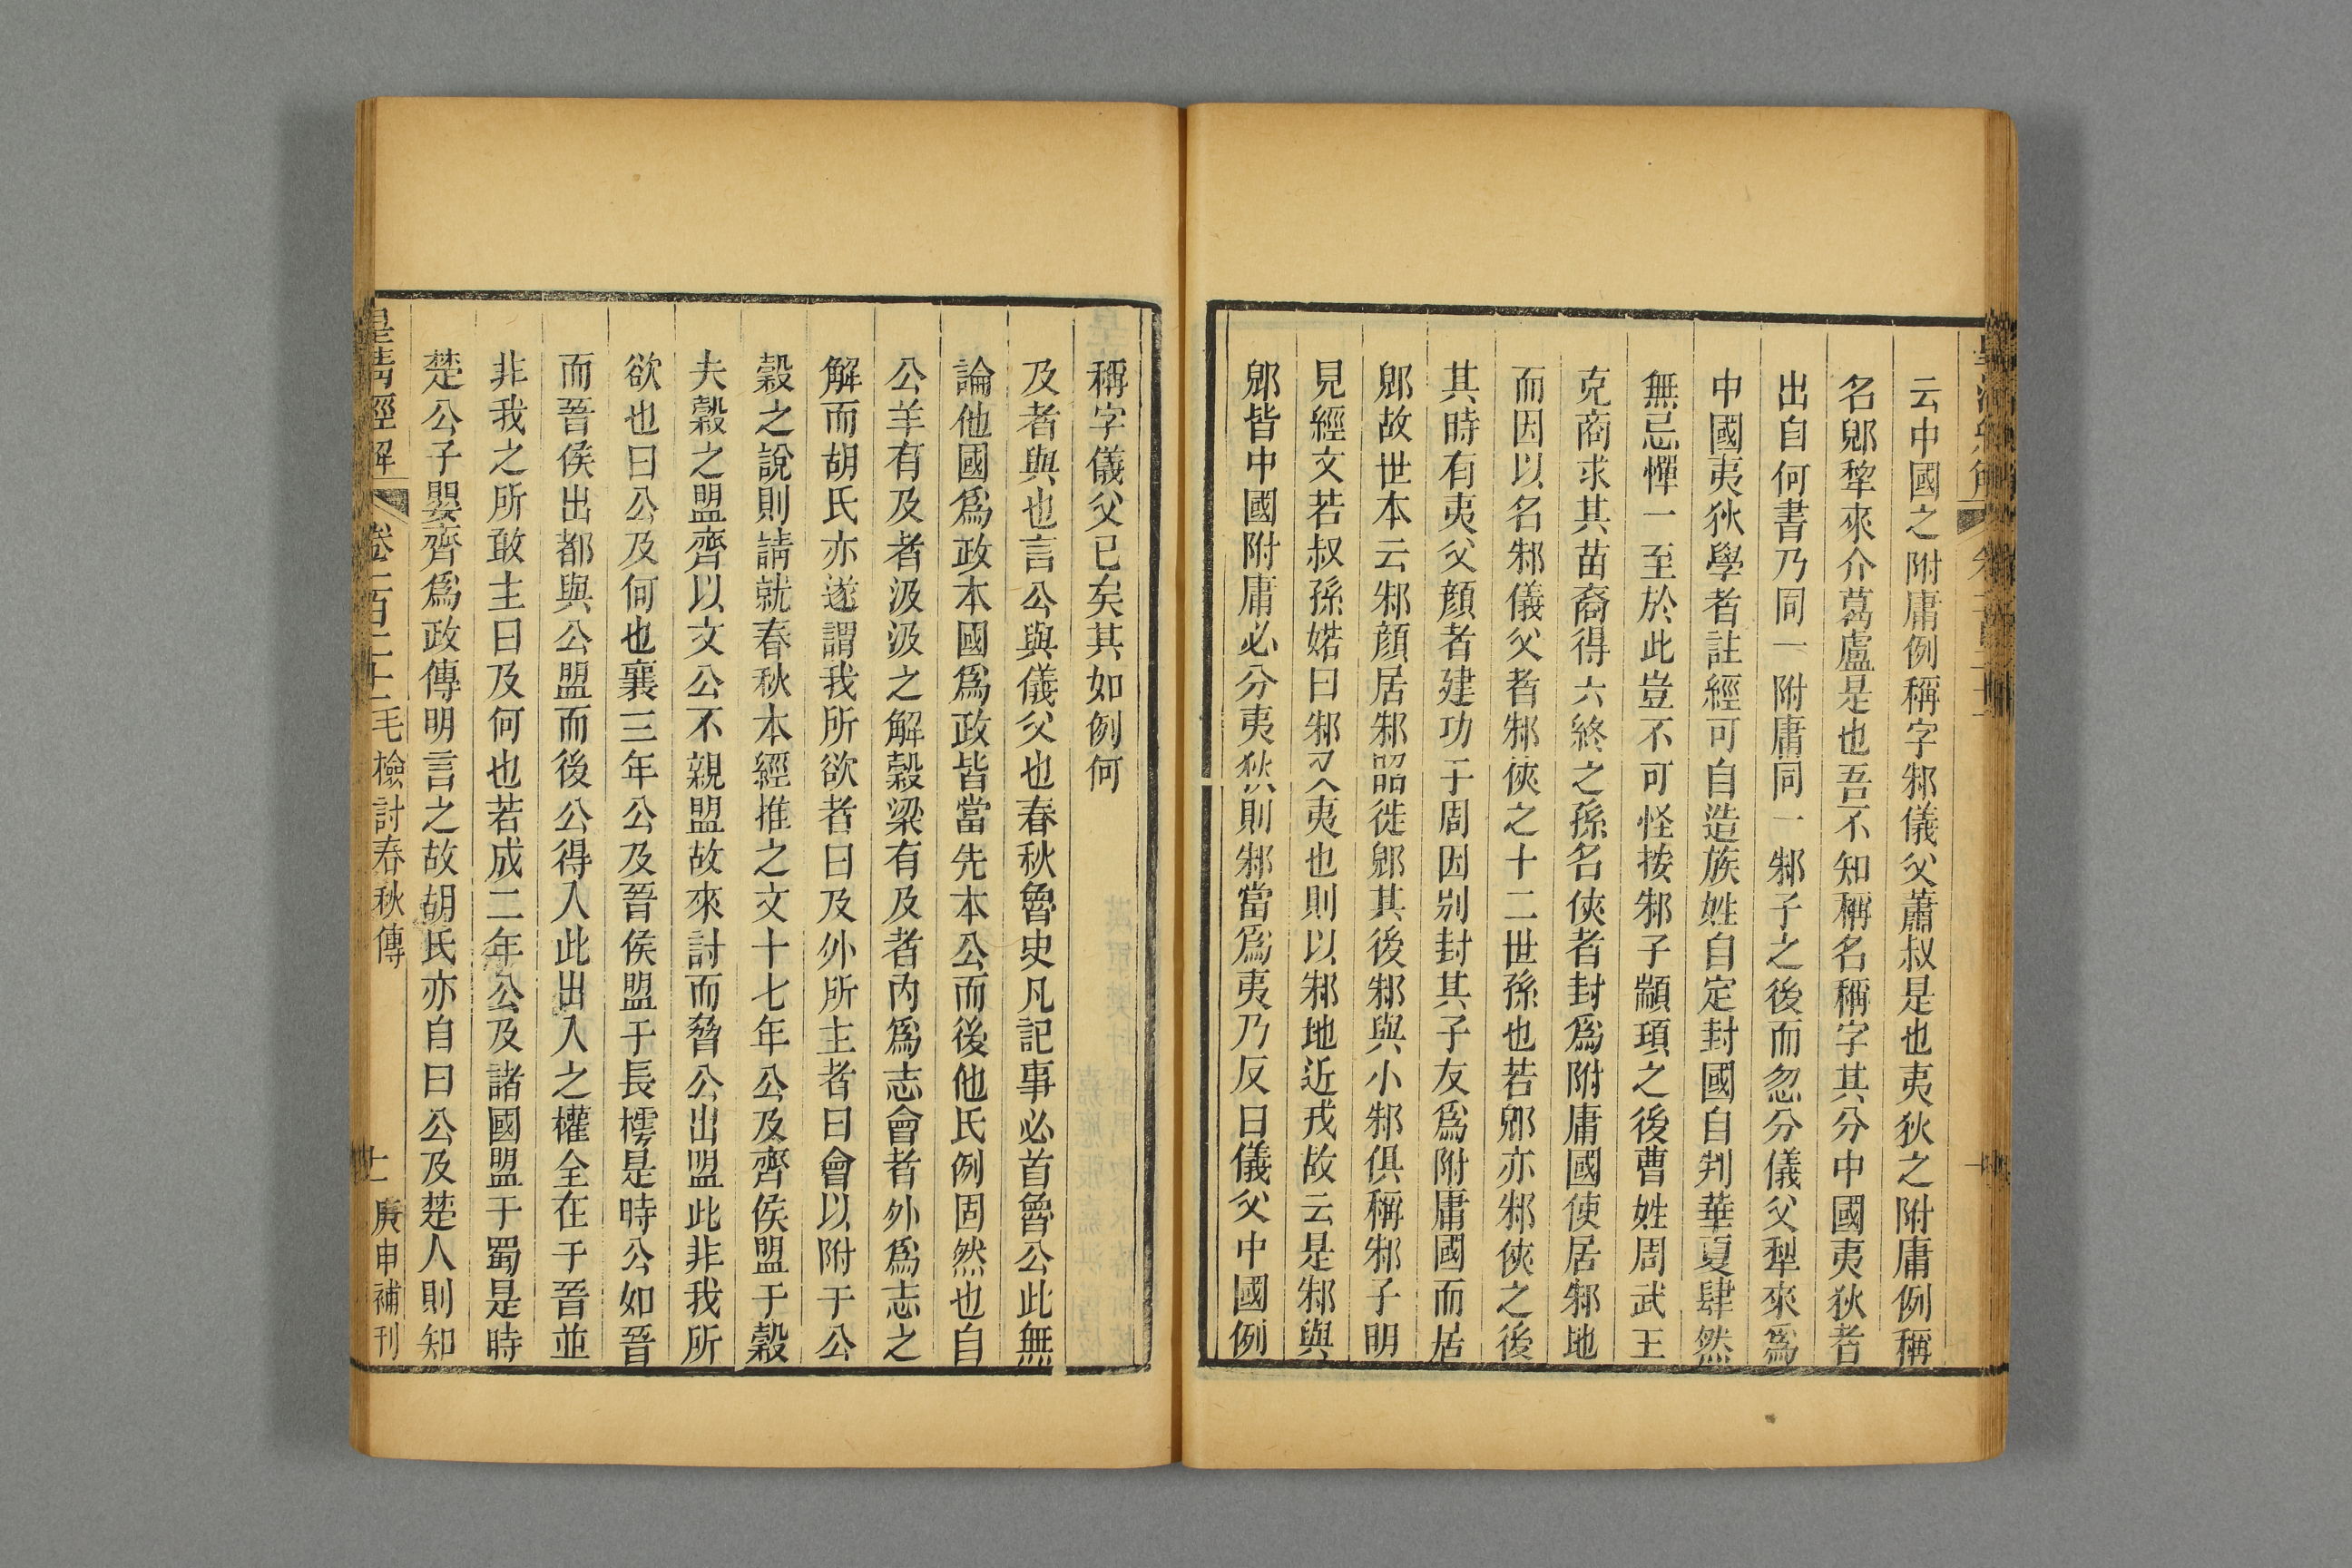 云中國之附庸例稱字邾儀父蕭叔是也夷狄之附庸例稱
名郳犂來介葛盧是也吾不知稱名稱字其分中國夷狄者
出自何書乃同一附庸同一邾子之後而忽分儀父犁來爲
中國夷狄學者註經可自造族姓自定封國自判華夏肆然
無忌憚一至於此豈不可怪按邾子顓頊之後曹姓周武王
克商求其苗裔得六終之孫名俠者封爲附庸國使居邾地
而因以名邾儀父者邾俠之十二世孫也若郳亦邾俠之後
其時有夷父顔者建功于周因別封其子友爲附庸國而居
郳故世本云邾顔居邾 徙郳其後邾與小邾俱稱邾子明
見經文若叔孫婼曰邾又夷也則以邾地近戎故云是邾與
郳皆中國附庸必分夷狄則邾當爲夷乃反曰儀父中國例
稱字儀父已矣其如例何
及者與也言公與儀父也春秋魯史凡記事必首魯公此無
論他國爲政本國爲政皆當先本公而後他氏例固然也自
公羊有及者汲汲之解穀梁有及者內爲志會者外爲志之
解而胡氏亦遂謂我所欲者曰及外所主者曰會以附于公
穀之說則請就春秋本經推之文十七年公及齊侯盟于穀
夫穀之盟齊以文公不親盟故來討而脅公出盟此非我所
欲也曰公及何也襄三年公及晉侯盟于長樗是時公如晉
而晉侯出都與公盟而後公得入此出入之權全在于晉並
非我之所敢主曰及何也若成二年公及諸國盟于蜀是時
楚公子嬰齊爲政傳明言之故胡氏亦自曰公及楚人則知
皇清經解 卷一百二十 毛檢討春秋傳 十一 庚申補刊